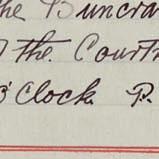 the Buncra
the Court
o'Clock P.